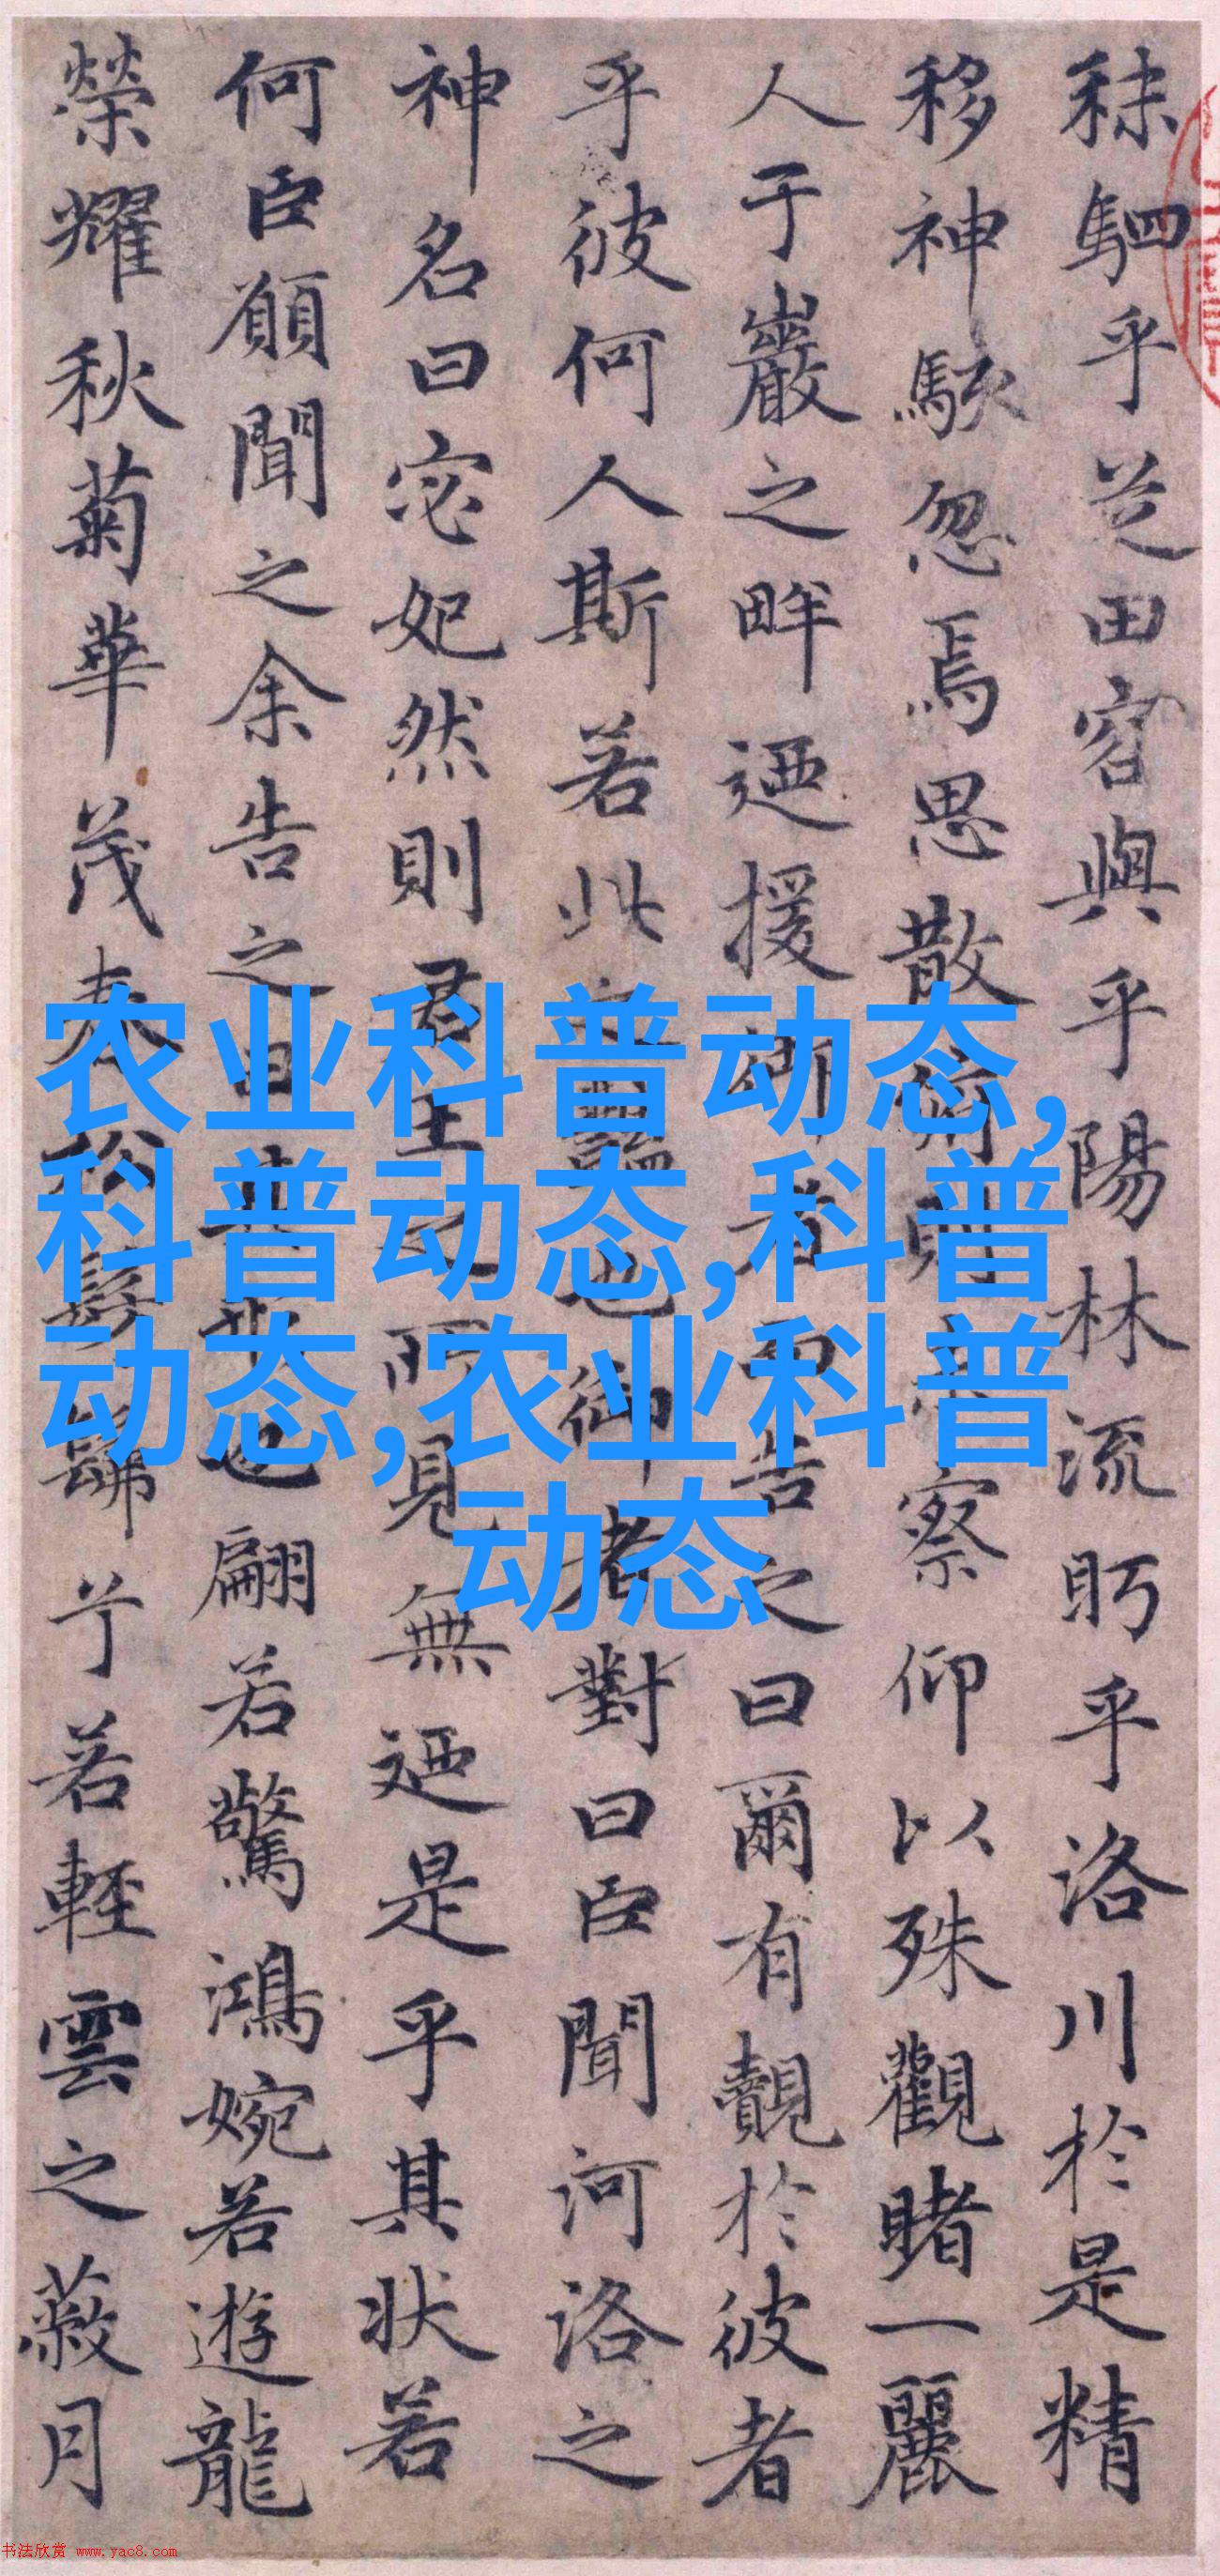 秣駟乎芝田容與乎陽林流眄乎洛川於是精
移神駭忽焉思散俯則未察仰以殊觀睹一麗
人于巖之畔迺援御者而告之曰爾有覿於彼者
乎彼何人斯若此之豔也御者對曰臣聞河洛之
神名曰宓妃然則君王之所見無迺是乎其狀若
何臣願聞之余告之曰其形也翩若驚鴻婉若遊龍
榮耀秋菊華茂春松髣髴兮若輕雲之蔽月
农业科普动态,
科普动态,科普
动态,农业科普
动态
书法欣赏 www.yac8.com